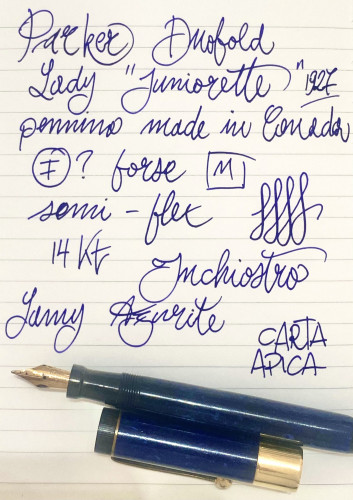 Parker Duofold
Lady "Juniorette" 1927
pennino made in Canada
F? forse M
semi-flex
14 Kt
Inchiostro
Lamy Azurite
CARTA
APICA